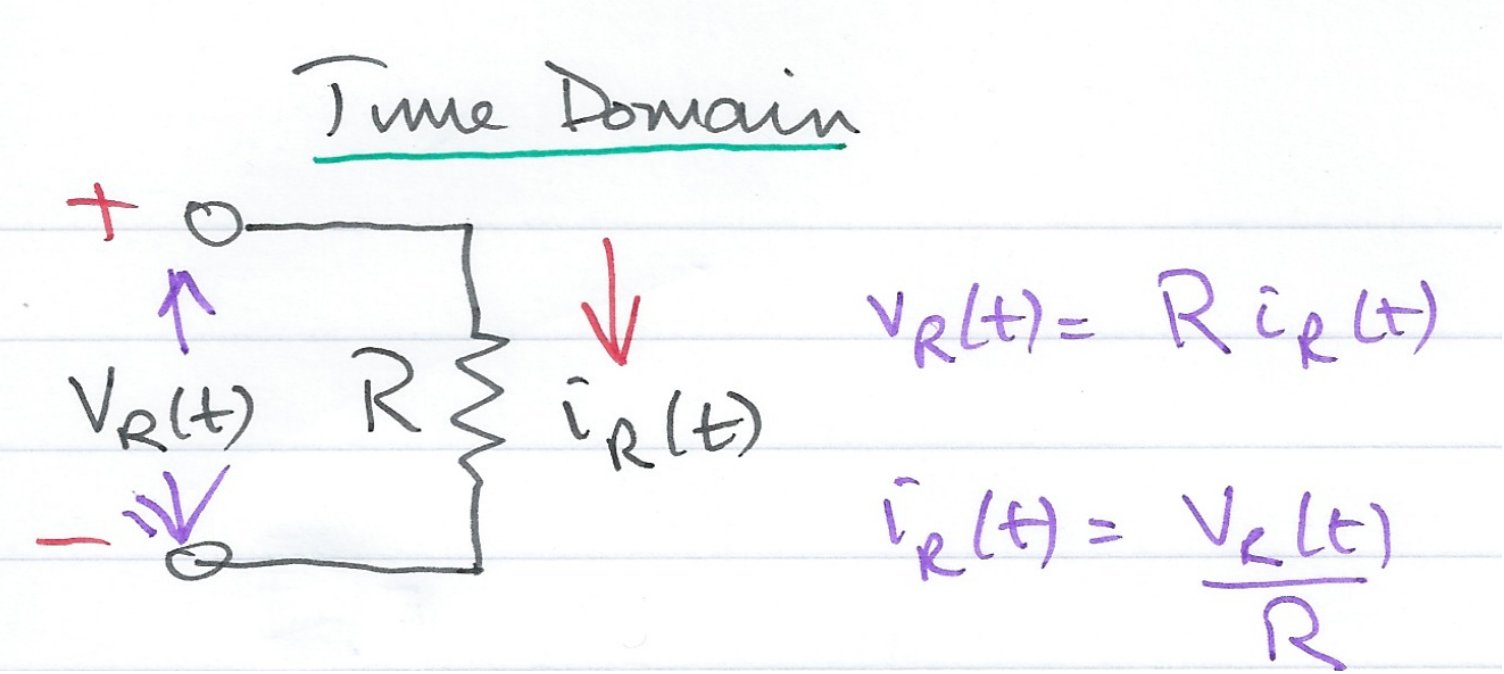 Time Domain
+
v_R(t) = R i_R(t)
V_R(t) R i_R(t)
−
i_R(t) = V_R(t) / R